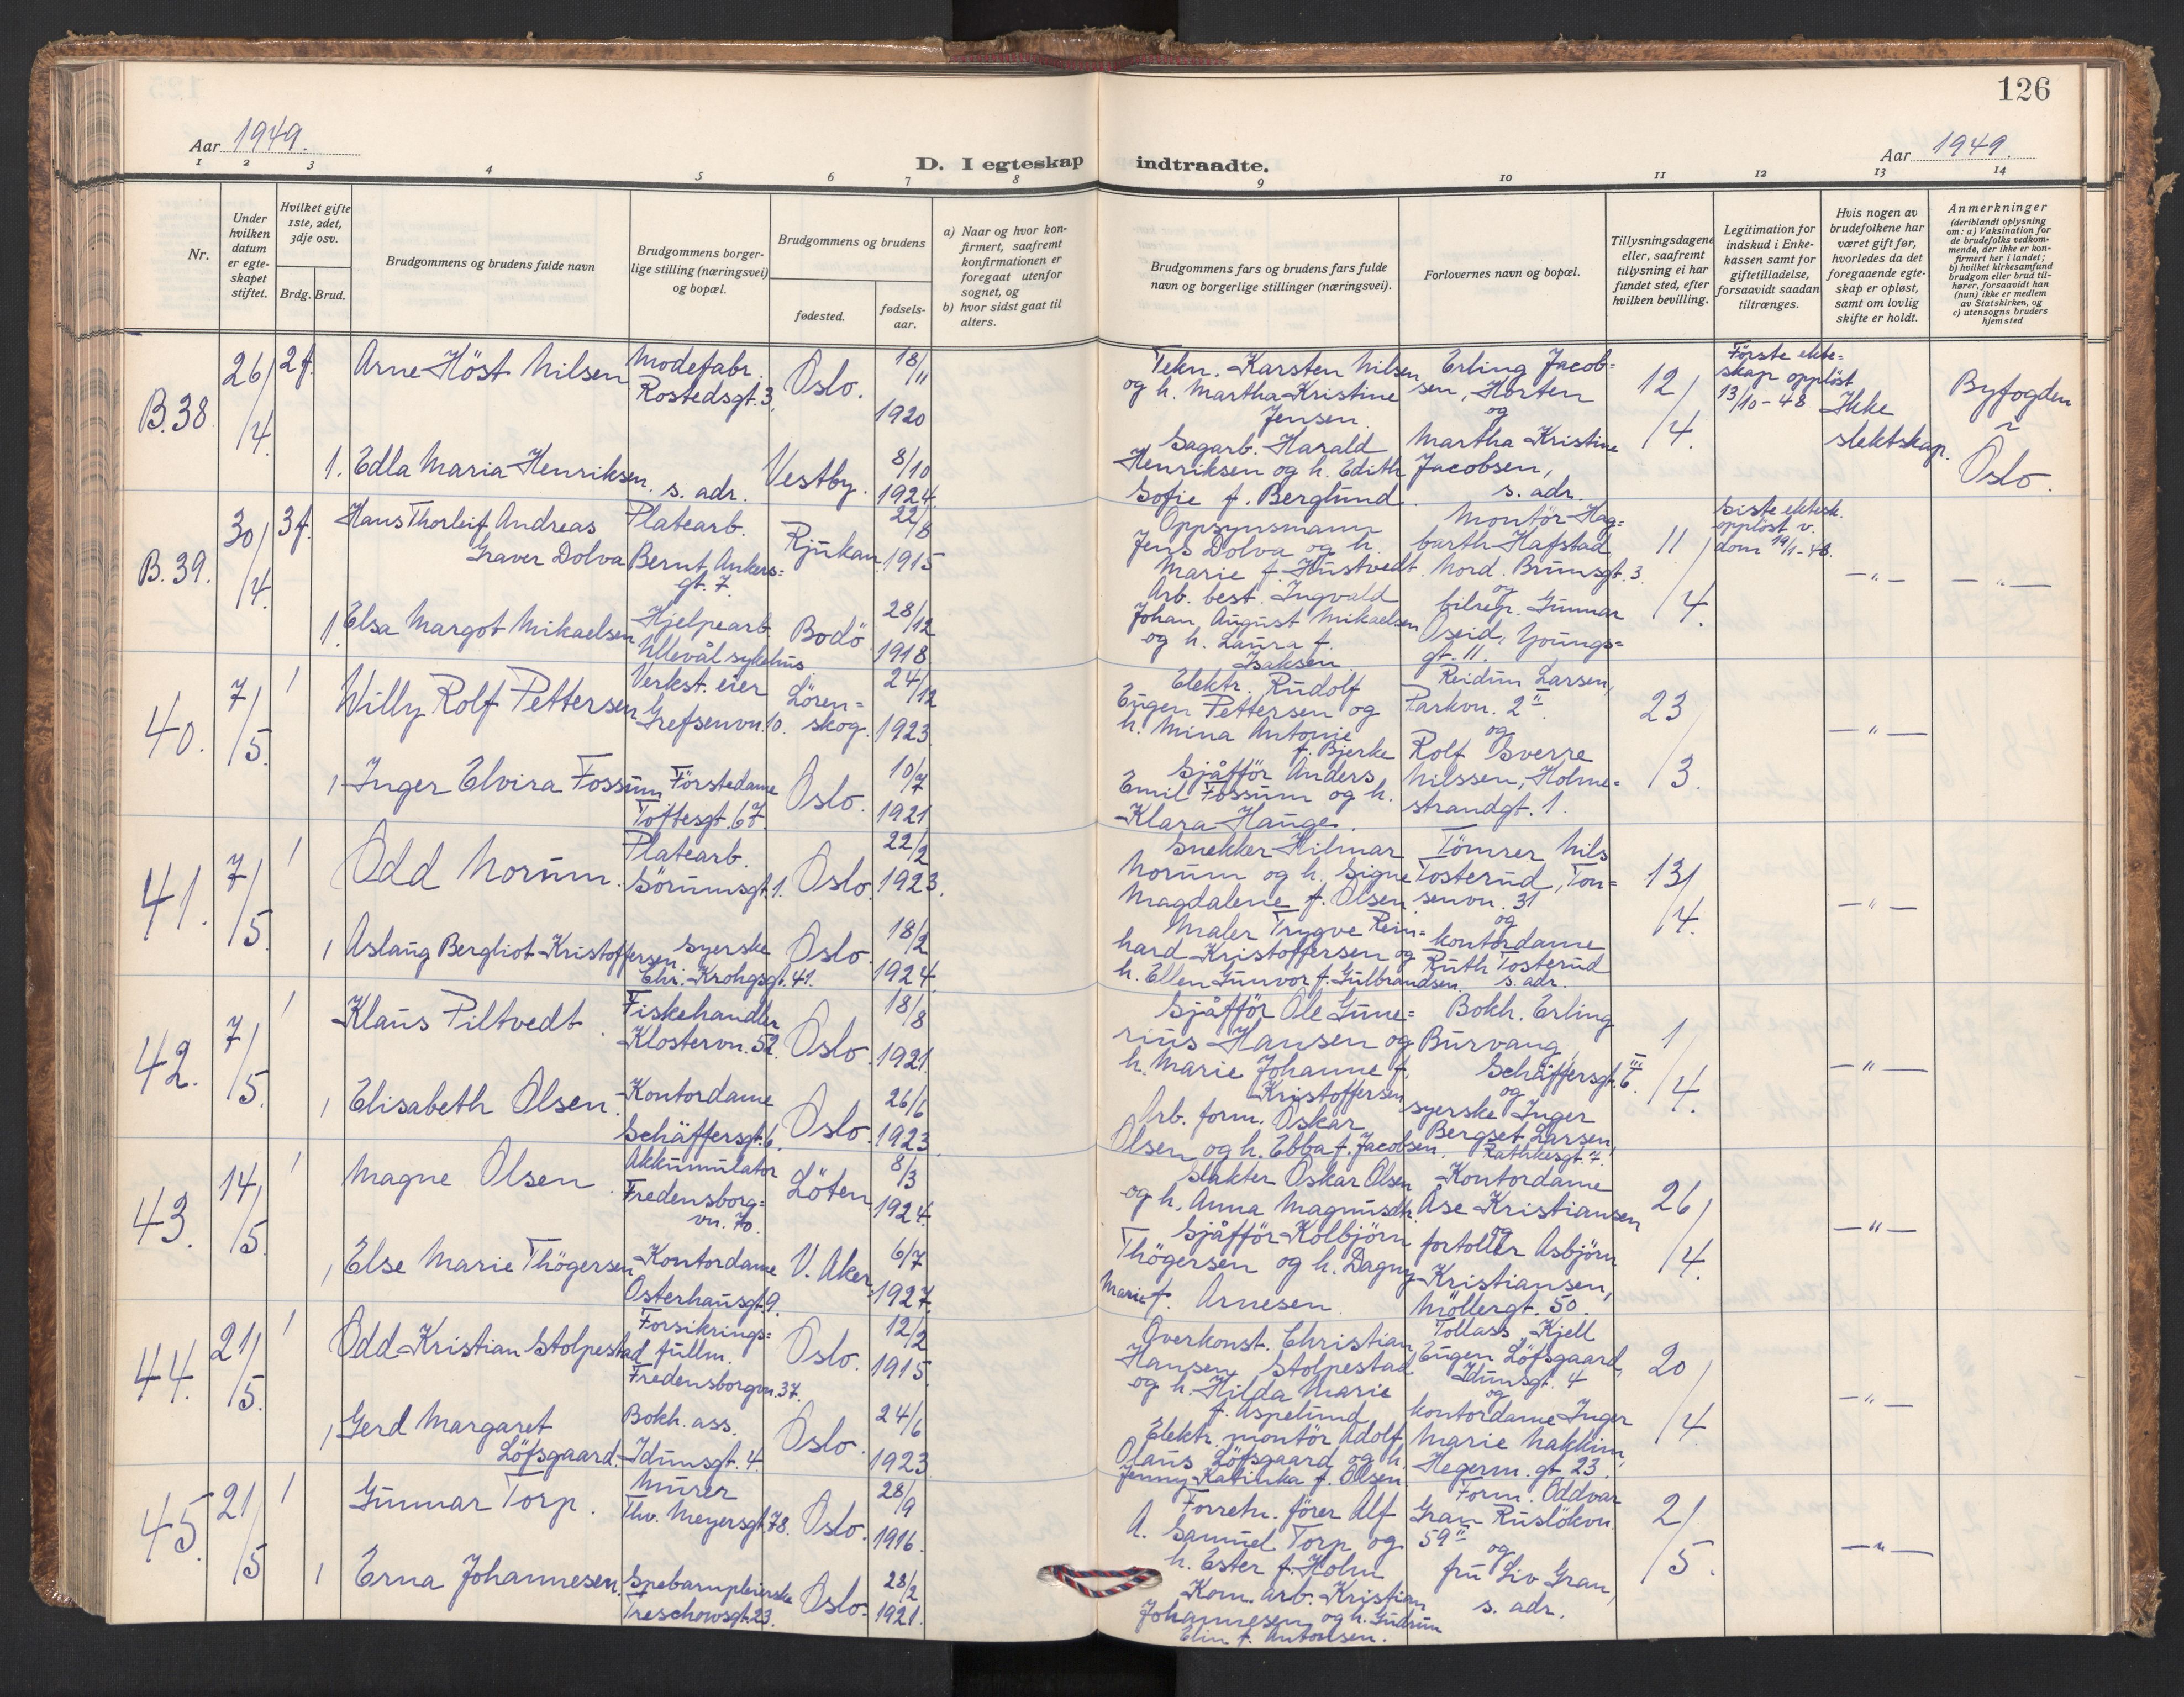 126
Aar 1949.
D. I egteskap indtraadte.
Aar 1949.
1 2 3 4 5 6 7 8 9 10 11 12 13 14
Nr.
Under hvilken datum er egte-skapet stiftet.
Hvilket gifte 1ste, 2det, 3dje osv.
Brdg. Brud.
Brudgommens og brudens fulde navn
Brudgommens borger-lige stilling (næringsvei) og bopæl.
Brudgommens og brudens
fødested.
fødsels-aar.
a) Naar og hvor kon-firmert, saafremt konfirmationen er foregaat utenfor sognet, og
b) hvor sidst gaat til alters.
Brudgommens fars og brudens fars fulde navn og borgerlige stillinger (næringsvei).
Forlovernes navn og bopæl.
Tillysningsdagene eller, saafremt tillysning ei har fundet sted, efter hvilken bevilling.
Legitimation for indskud i Enke-kassen samt for giftetilladelse, forsaavidt saadan tiltrænges.
Hvis nogen av brudefolkene har været gift før, hvorledes da det foregaaende egte-skap er opløst, samt om lovlig skifte er holdt.
Anmerkninger
(deriblandt oplysning om: a) Vaksination for de brudefolks vedkom-mende, der ikke er kon-firmert her i landet; b) hvilket kirkesamfund brudgom eller brud til-hører, forsaavidt han (hun) ikke er medlem av Statskirken, og c) utensogns bruders hjemsted
B.38. 26/4. 2f. Arne Höst Nilsen
Modefabr.
Rostedsgt. 3.
Oslo. 18/11 1920
Tekn. Karsten Nilsen
og h. Martha Kristine
Jensen.
Erling Jacob=
sen, Horten
og
12/4.
Første ekte=
skap oppløst
13/10-48
Ikke
slektskap.
Byfogden
i
Oslo.
1. Edla Maria Henriksen. s. adr. Vestby. 8/10 1924.
Sagarb. Harald
Henriksen og h. Edith
Sofie f. Berglund.
Martha Kristine
Jacobsen,
s. adr.
B.39. 30/4. 3f. Hans Thorleif Andreas
Graver Dolva
Platearb.
Bernt Ankers=
gt. 7.
Rjukan 22/8 1915
Oppsynsmann
Jens Dolva og h.
Marie f. Hustvedt.
Montör Hag=
barth Hafstad
Nord. Brunsgt. 3.
og
11/4.
Siste ektesk.
oppløst v.
dom 19/1-48.
—"— —"—
1. Elsa Margot Mikaelsen
Hjelpearb.
Ullevål sykehus
Bodö 28/12 1918
Arb. best. Ingvald
Johan August Mikaelsen
og h. Laura f.
Isaksen.
bilrep. Gunnar
Oseid, Youngs=
gt. 11.
40. 7/5. 1 Willy Rolf Pettersen
Verkst. eier
Grefsenvn. 10.
Lören=
skog.
24/12 1923
Elektr. Rudolf
Eugen Pettersen og
h. Mina Antonie
f. Bjerke
Reidun Larsen,
Parkvn. 2 II.
og
23/3.
—"—
1 Inger Elvira Fossum
Förstedame
Toftesgt. 67.
Oslo. 10/7 1921
Sjåfför Anders
Emil Fossum og h.
Klara Hauge.
Rolf Sverre
Nilssen, Holme=
strandgt. 1.
41. 7/5. 1 Odd Norum.
Platearb.
Sörumsgt. 1.
Oslo. 22/2 1923.
Snekker Hilmar
Norum og h. Signe
Magdalene f. Olsen
Tömrer Nils
Tosterud, Ton=
senvn. 31
og
13/4.
—"—
1 Aslaug Bergliot Kristoffersen
Syerske
Chr. Krohgsgt. 41.
Oslo. 18/2 1924.
Maler Trygve Rein=
hard Kristoffersen og
h. Ellen Gunvor f. Gulbrandsen.
kontordame
Ruth Tosterud
s. adr.
42. 7/5. 1 Klaus Piltvedt.
Fiskehandler
Klostervn. 52.
Oslo. 18/8 1921.
Sjåfför Ole Gune=
rius Hansen og
h. Marie Johanne f.
Kristoffersen
Bokh. Erling
Burvang,
Schäffersgt. 6 III.
og
1/4.
—"—
1 Elisabeth Olsen.
Kontordame
Schäffersgt. 6.
Oslo. 26/6 1923
Arb. form. Oskar
Olsen og h. Ebba f. Jacobsen.
syerske Inger
Bergset Larsen,
Rathkesgt. 7.
43. 14/5. 1 Magne Olsen.
Akkumulator
Fredensborg=
vn. 70.
Löten 8/3 1924.
Slakter Oskar Olsen
og h. Anna Magnusdtr.
Kontordame
Åse Kristiansen
og
26/4.
—"—
1 Else Marie Thögersen
Kontordame
Osterhausgt. 9.
V. Aker 6/7 1927.
Sjåfför Kolbjörn
Thögersen og h. Dagny
Marie f. Arnesen.
fortoller Asbjörn
Kristiansen,
Möllergt. 50.
44. 21/5. 1 Odd Kristian Stolpestad
Forsikrings=
fullm.
Fredensborgvn. 37.
Oslo. 12/2 1915.
Overkonst. Christian
Hansen Stolpestad
og h. Hilda Marie
f. Aspelund
Tollass. Kjell
Eugen Löfsgaard,
Idunsgt. 4
og
20/4
—"—
1 Gerd Margaret
Löfsgaard.
Bokh. ass.
Idunsgt. 4.
Oslo. 24/6 1923
Elektr. montör Adolf
Olaus Löfsgaard og h.
Jenny Katinka f. Olsen
kontordame Inger
Marie Nakkim,
Hegerm. gt. 23.
45. 21/5 1 Gunnar Torp.
Murer
Thv. Meyersgt. 78.
Oslo. 28/9 1916.
Forretn. förer Alf
A. Samuel Torp og
h. Ester f. Holm
Form. Oddvar
Gran Ruslökvn.
59 II
og
2/5.
—"—
1 Erna Johannesen.
Spebarnpleierske
Treschowsgt. 23.
Oslo. 28/2 1921.
Kom. arb. Kristian
Johannesen og h. Gudrun
Elin f. Antonsen.
fru Liv Gran,
s. adr.